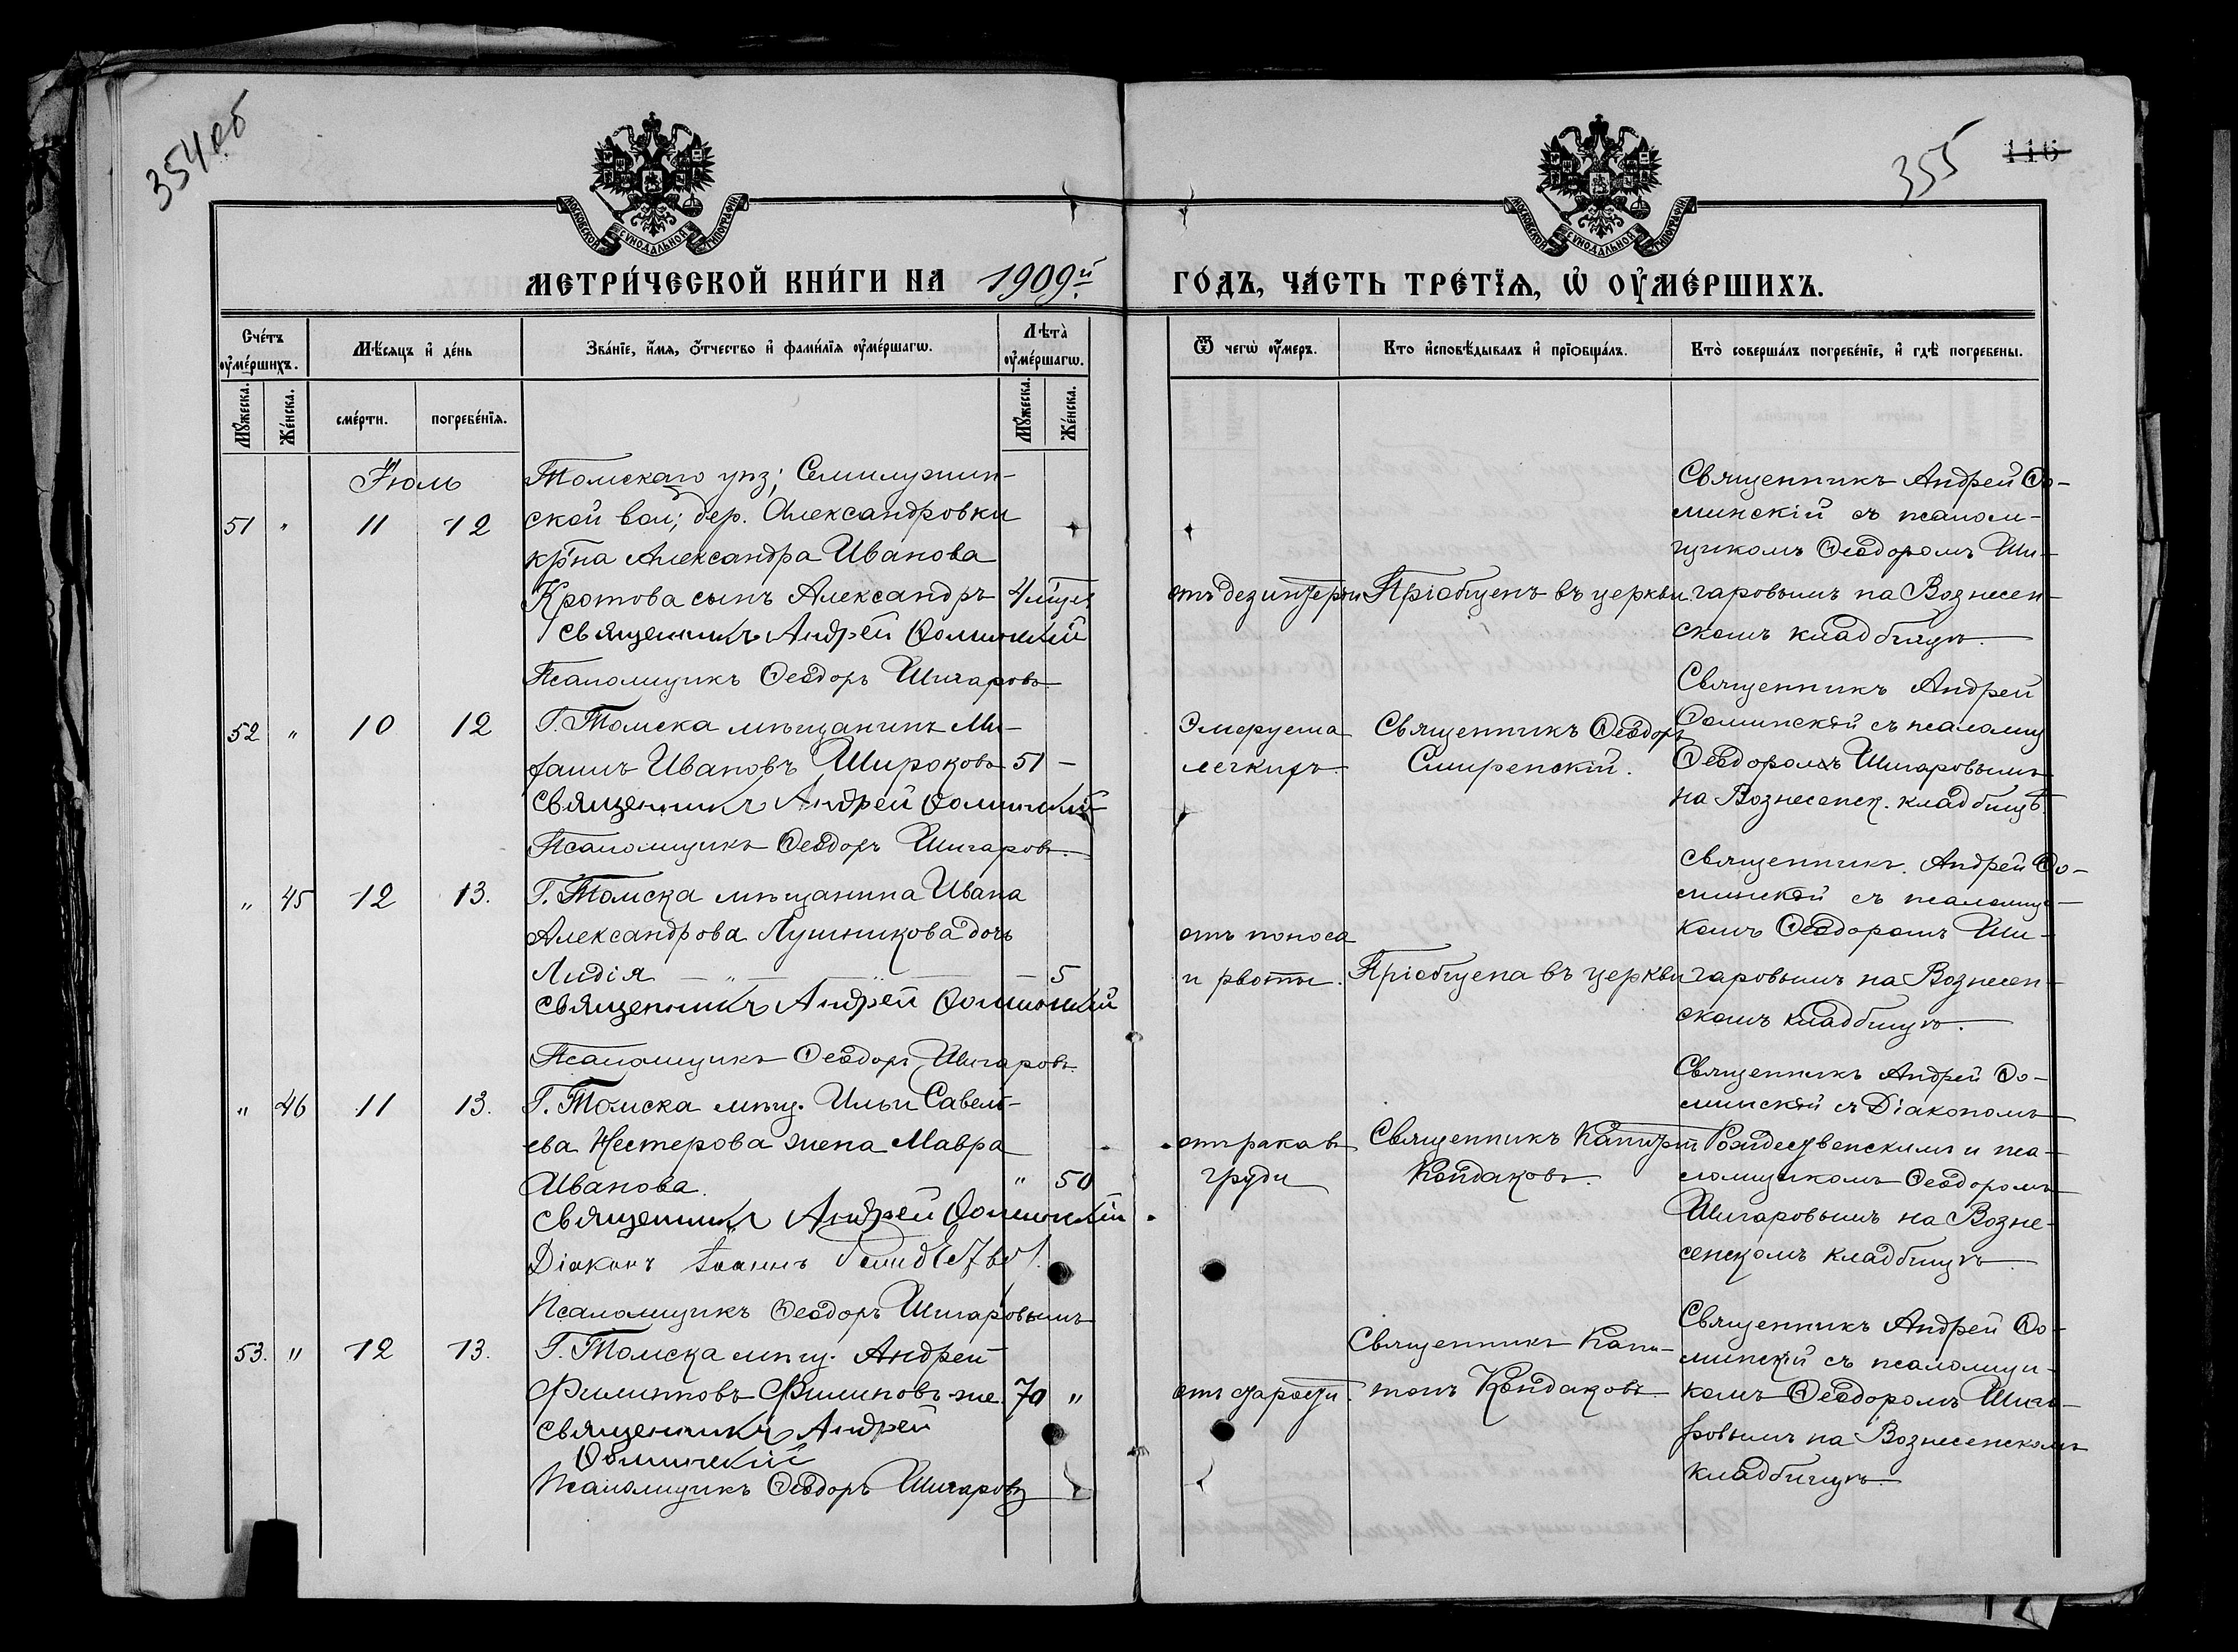 354 об
355
116
МОСКОВСКОЙ СѴНОДАЛЬНОЙ ТИПОГРАФІИ
МОСКОВСКОЙ СѴНОДАЛЬНОЙ ТИПОГРАФІИ
МЕТРИ́ЧЕСКОЙ КНИ́ГИ НА 1909й
ГО́ДЪ, ЧА́СТЬ ТРЕ́ТЇѦ, Ѡ҆ ОУ҆МЕ́РШИХЪ.
Сче́тъ оу҆ме́ршихъ.
Мѣ́сяцъ и҆ де́нь
Зва́нїе, и҆́мя, ѻ҆́тчество и҆ фами́лїя оу҆ме́ршагѡ.
Лѣта̀ оу҆ме́ршагѡ.
Ѿ чегѡ̀ оу҆́меръ.
Кто̀ и҆сповѣ́дывалъ и҆ прїѻбща́лъ.
Кто̀ соверша́лъ погребе́нїе, и҆ гдѣ̀ погребены̀.
Мꙋ́жеска.
Же́нска.
сме́рти.
погребе́нїя.
Мꙋ́жеска.
Же́нска.
Іюль
51 " 11 12
Томскаго уѣз; Семилужин-
ской вол; дер. Александровки
кр-на Александра Иванова
Кротова сынъ Александръ
Священникъ Андрей Ѳоминскій
Псаломщикъ Ѳеодоръ Шигаровъ
Пріобщенъ въ церкви.
Священникъ Андрей Ѳо-
минскій съ псалом-
щикомъ Ѳеодоромъ Ши-
гаровымъ на Вознесен-
скомъ кладбищѣ.
52 " 10 12
Г. Томска мѣщанинъ Ми-
Ивановъ Широковъ 51 -
Священникъ Андрей Ѳоминскій
Псаломщикъ Ѳеодоръ Шигаровъ.
легкихъ.
Священникъ Ѳеодоръ
Смиренскій.
Священникъ Андрей
Ѳоминскій съ псаломщ
Ѳеодоромъ Шигаровымъ
на Вознесенск. кладбищѣ.
" 45 12 13.
Г. Томска мѣщанина Ивана
Александрова Лушникова дочь
Лидія - " - - 5
Священникъ Андрей Ѳоминскій
Псаломщикъ Ѳеодоръ Шигаровъ.
отъ поноса
и рвоты.
Пріобщена въ церкви
Священникъ. Андрей Ѳо-
минскій съ псаломщи-
комъ Ѳеодоромъ Ши-
гаровымъ на Вознесен-
скомъ кладбищѣ.
" 46 11 13.
Г. Томска мѣщ. Ильи Савель-
ева Нестерова жена Мавра
Иванова. " 50
Священникъ Андрей Ѳоминскій
Діаконъ Іоаннъ
Псаломщикъ Ѳеодоръ Шигаровымъ
отъ рака въ
груди
Священникъ
Кондаковъ.
Священникъ Андрей Ѳо-
минскій съ Діакономъ
Рождественскимъ и пса-
ломщикомъ Ѳеодоромъ
Шигаровымъ на Возне-
сенскомъ кладбищѣ
53. " 12 13.
Г. Томска мѣщ. Андрей
Филипповъ Филиповъ-же. 70 "
Священникъ Андрей
Ѳоминскій
Псаломщикъ Ѳеодоръ Шигаровъ
отъ старости.
Священникъ Капи-
тонъ Кондаковъ
Священникъ Андрей Ѳо-
минскій съ псаломщи-
комъ Ѳеодоромъ Шига-
ровымъ на Вознесенскомъ
кладбищѣ.